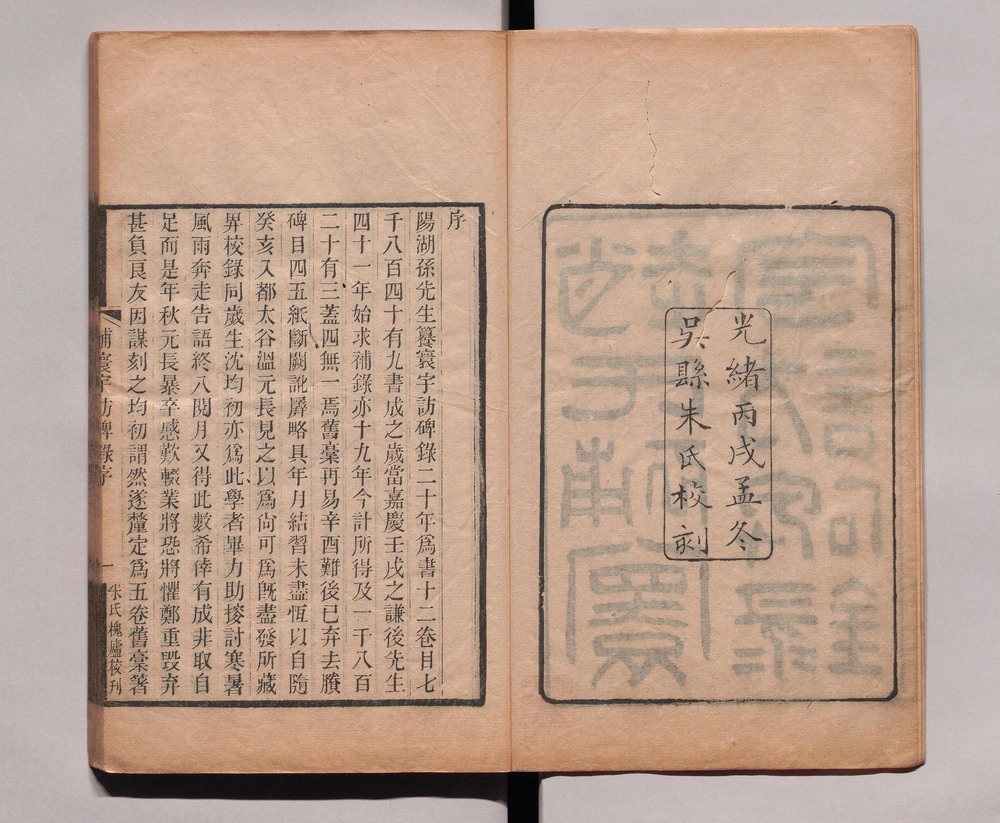 光緒丙戌孟冬
吳縣朱氏校刻
序
陽湖孫先生籑寰宇訪碑錄二十年爲書十二卷目七
千八百四十有九書成之歲當嘉慶壬戌之謙後先生
四十一年始求補錄亦十九年今計所得及一千八百
二十有三蓋四無一焉舊稾再易辛酉難後已弃去賸
碑目四五紙斷闕訛屚略具年月結習未盡恆以自隨
癸亥入都太谷溫元長見之以爲尙可爲旣盡發所藏
畀校錄同歲生沈均初亦爲此學者畢力助搜討寒暑
風雨奔走告語終八閱月又得此數希倖有成非取自
足而是年秋元長暴卒感歎輟業將恐將懼鄭重毀弃
甚負良友因謀刻之均初謂然遂釐定爲五卷舊稾箸
補寰宇訪碑錄序
一
朱氏槐廬校刊